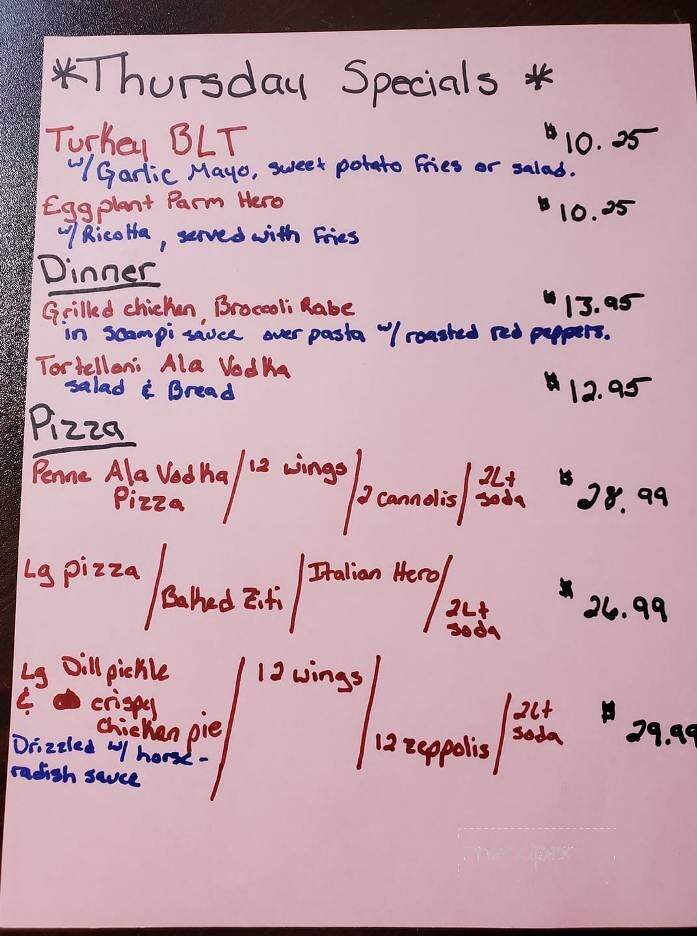 *Thursday Specials *
Turkey BLT $10.25
w/ Garlic Mayo, sweet potato fries or salad.
Eggplant Parm Hero $10.25
w/ Ricotta, served with Fries
Dinner
Grilled chicken, Broccoli Rabe $13.95
in scampi sauce over pasta w/ roasted red peppers.
Tortelloni Ala Vodka $12.95
salad & Bread
Pizza
Penne Ala Vodka / 12 wings / 2 cannolis / 2Lt $28.99
Pizza soda
Lg pizza / Baked Ziti / Italian Hero / 2Lt $26.99
soda
Lg Dill pickle / 12 wings / 12 zeppolis / 2Lt $29.99
& crispy soda
chicken pie
Drizzled w/ horse-
radish sauce